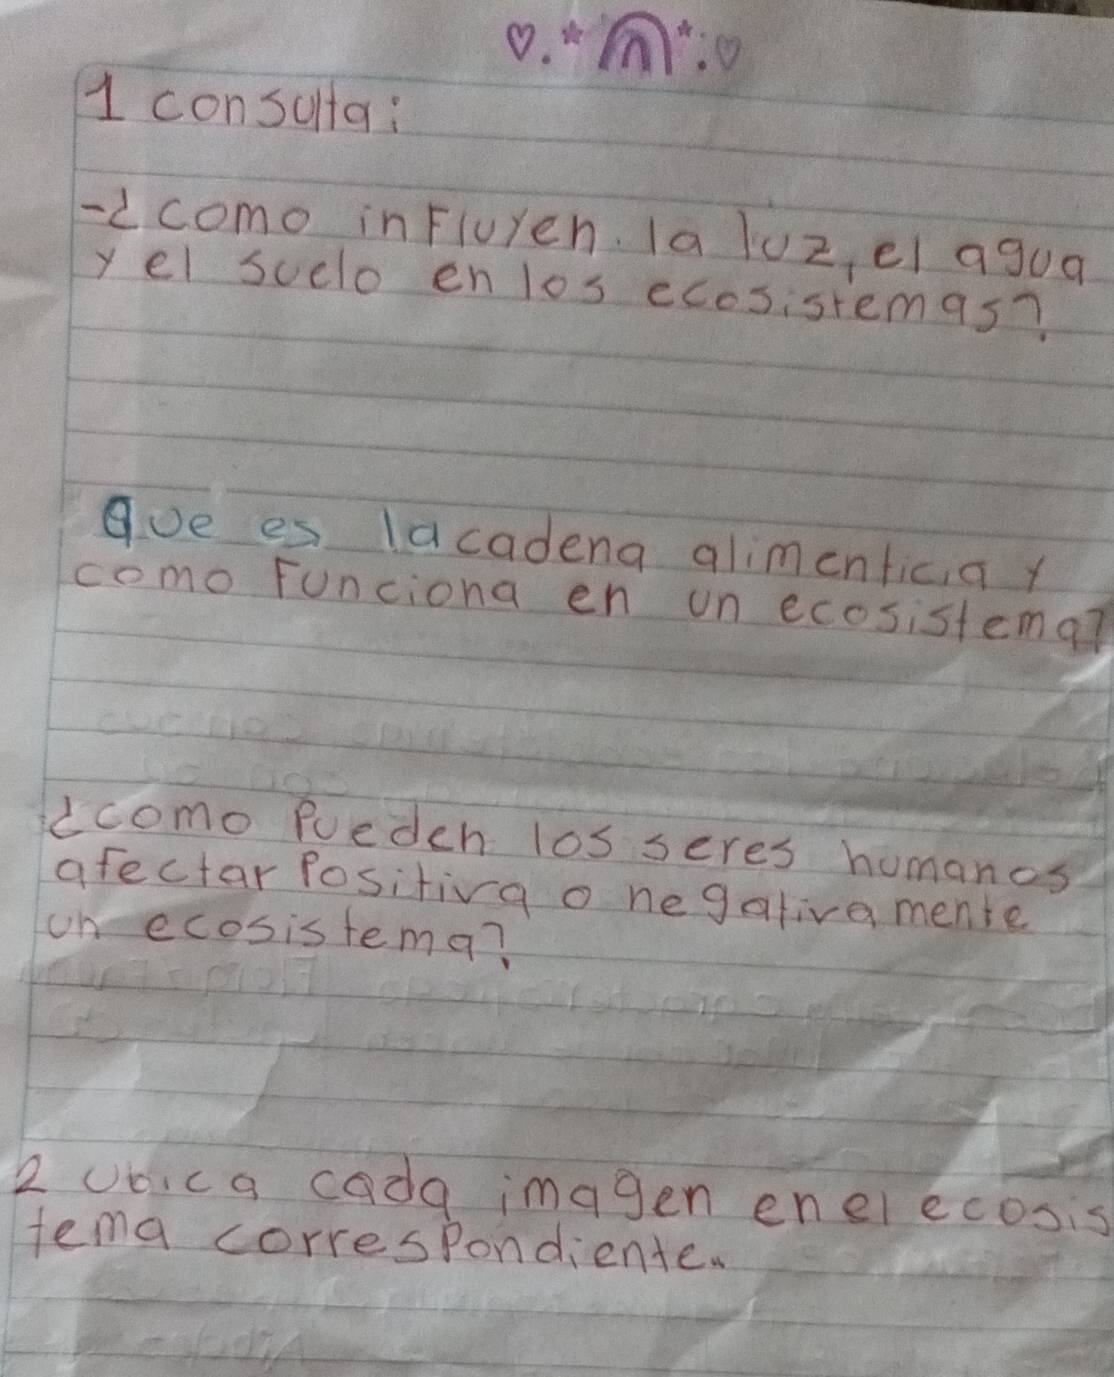 1 consulta:
-¿como influyen. la luz, el agua
y el suelo en los ecosistemas?
que es la cadena alimenticia y
como Funciona en un ecosistema?
¿como Pueden los seres humanos
afectar Positiva o negativamente
un ecosistema?
2 ubica cada imagen en el ecosis
tema correspondiente.